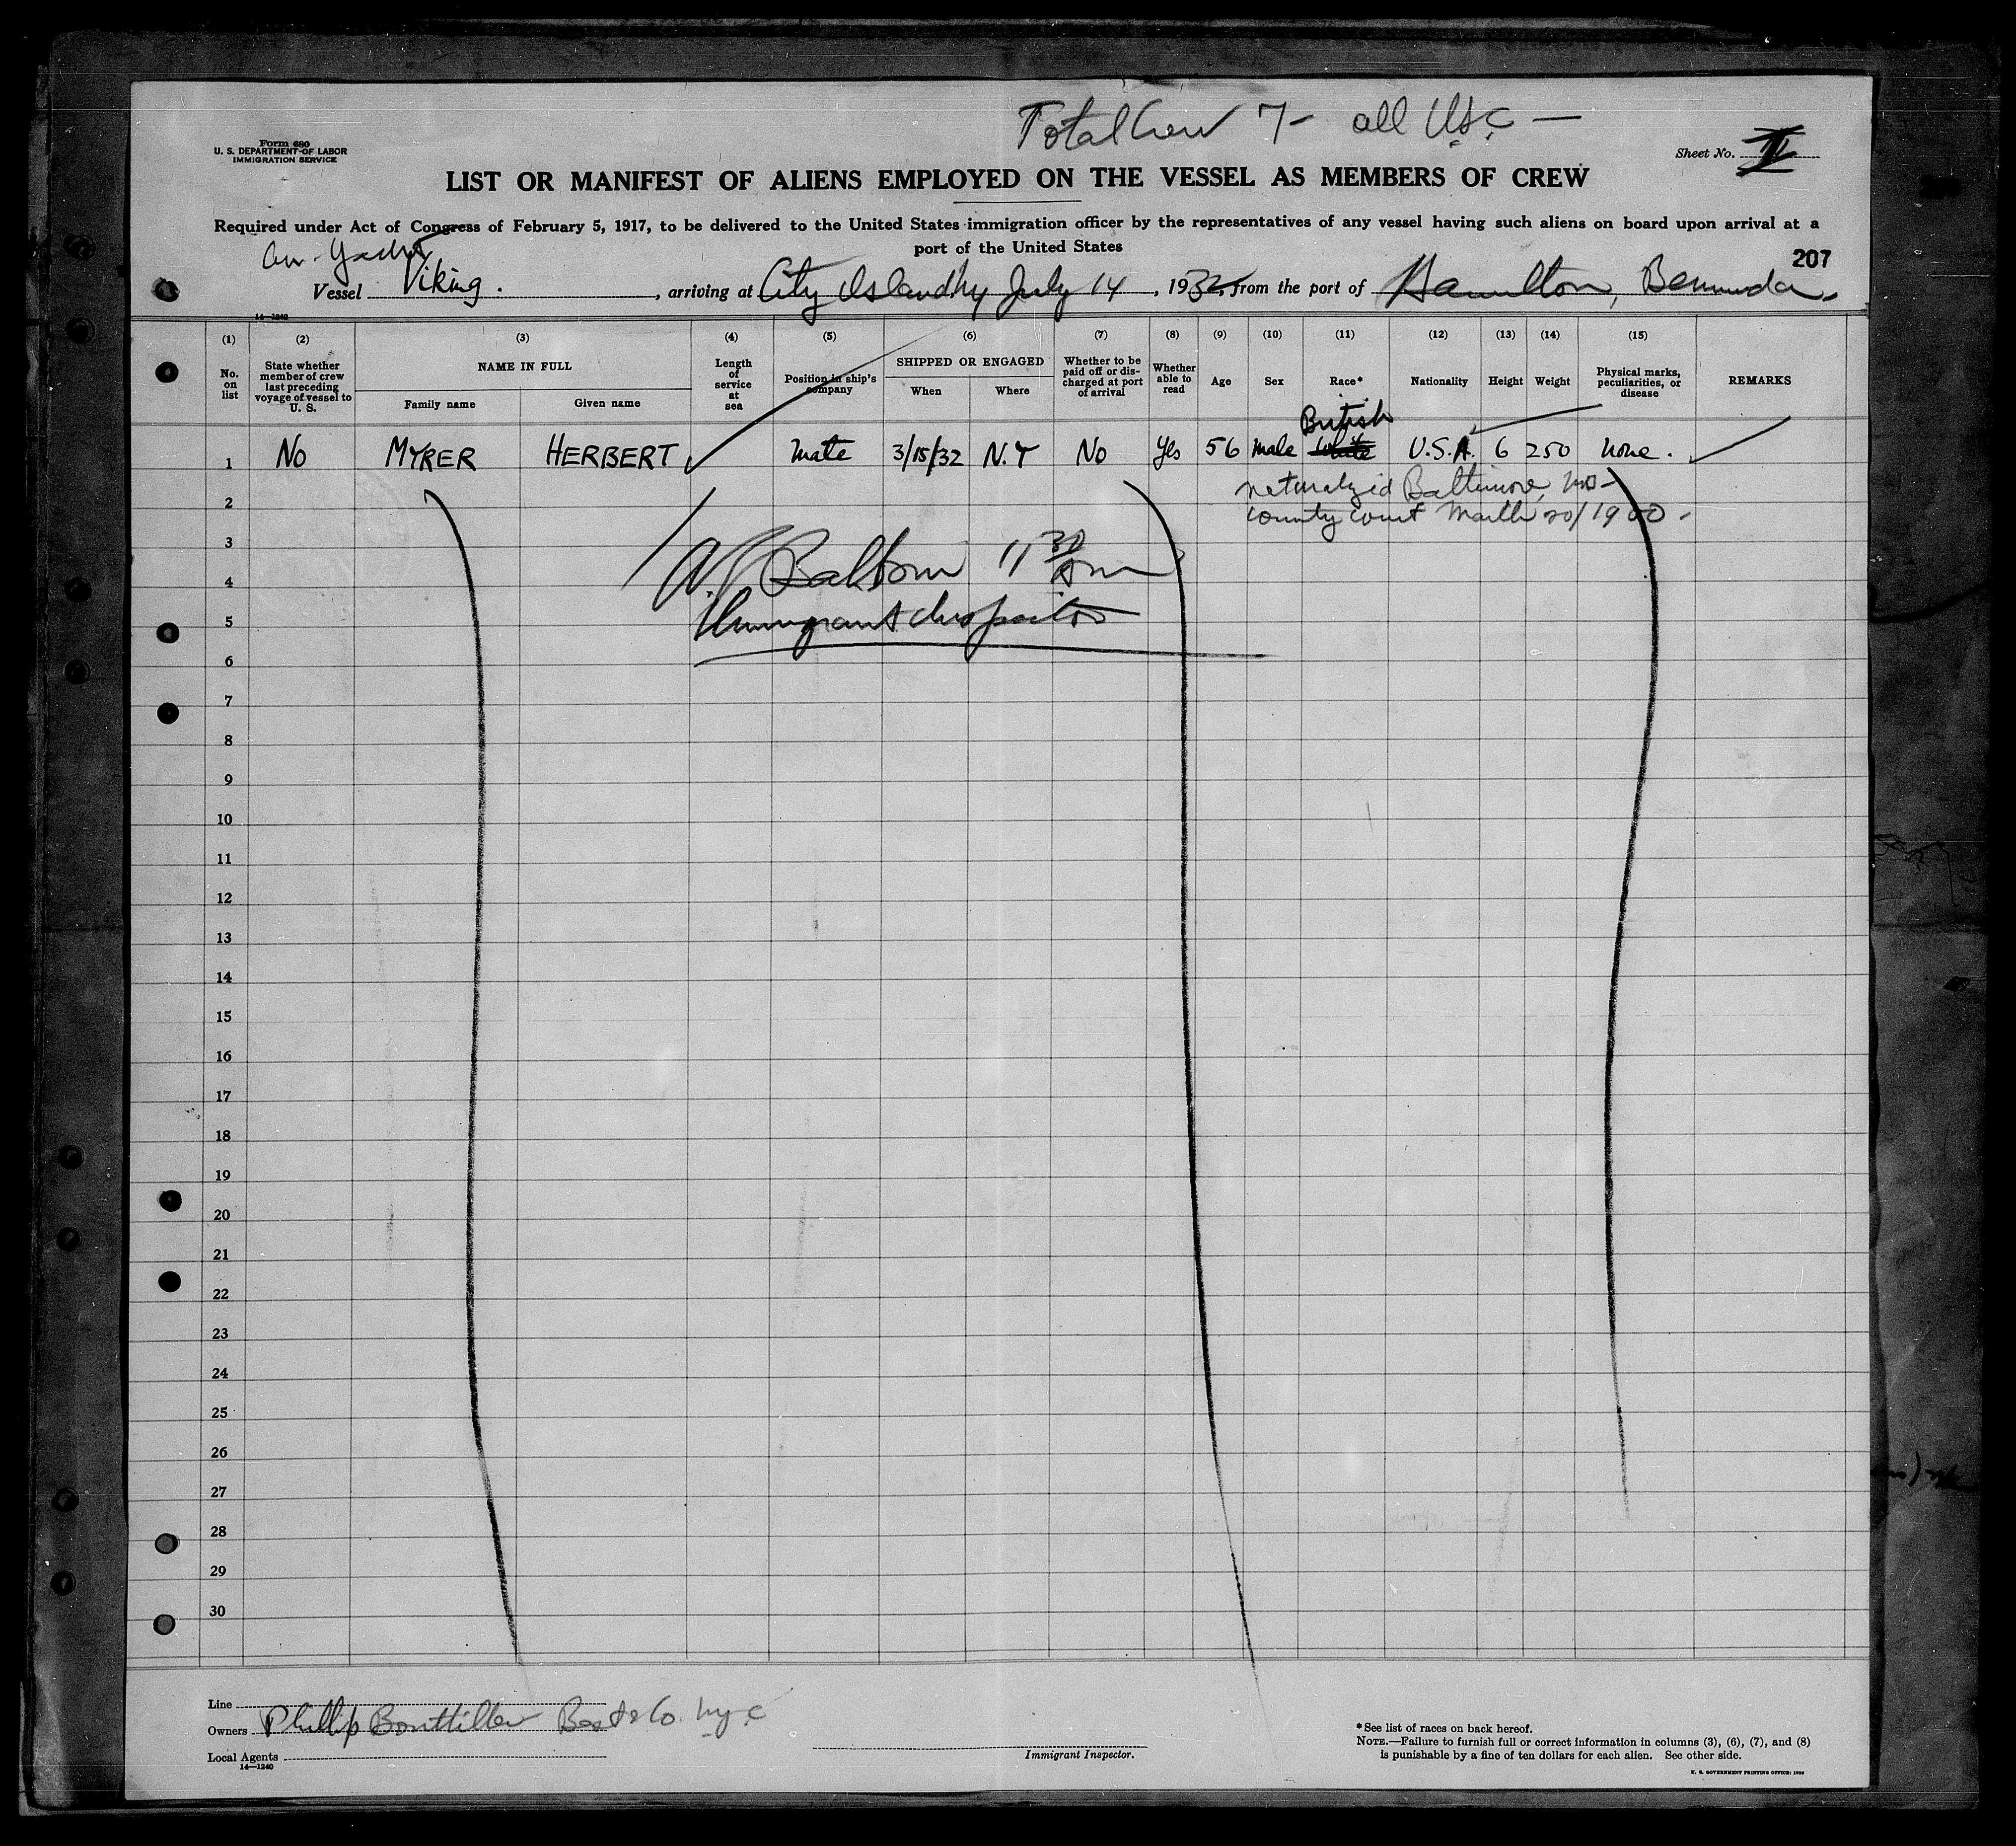 Total Crew 7 - all U.S.C. -
Form 680
U. S. DEPARTMENT OF LABOR
IMMIGRATION SERVICE
Sheet No.
LIST OR MANIFEST OF ALIENS EMPLOYED ON THE VESSEL AS MEMBERS OF CREW
Required under Act of Congress of February 5, 1917, to be delivered to the United States immigration officer by the representatives of any vessel having such aliens on board upon arrival at a
port of the United States
207
Am. Yacht
Vessel Viking. , arriving at City Island, NY July 14 , 1932, from the port of Hamilton, Bermuda.
14—1240
(1) (2) (3) (4) (5) (6) (7) (8) (9) (10) (11) (12) (13) (14) (15)
No. on list
State whether member of crew last preceding voyage of vessel to U. S.
NAME IN FULL
Family name
Given name
Length of service at sea
Position in ship's company
SHIPPED OR ENGAGED
When
Where
Whether to be paid off or discharged at port of arrival
Whether able to read
Age
Sex
Race*
Nationality
Height
Weight
Physical marks, peculiarities, or disease
REMARKS
British
1 No MYRER HERBERT Mate 3/15/32 N.Y No Yes 56 Male White U.S.A. 6 250 None.
naturalyzied Baltimore, MD -
2
county court March 20/1900 -
3
4
11 30 Am
5
Immigrant Inspector
6
7
8
9
10
11
12
13
14
15
16
17
18
19
20
21
22
23
24
25
26
27
28
29
30
Line
Owners Phillip Best & Co. N.Y.C
Local Agents
14—1240
Immigrant Inspector.
*See list of races on back hereof.
NOTE.—Failure to furnish full or correct information in columns (3), (6), (7), and (8)
is punishable by a fine of ten dollars for each alien. See other side.
U. S. GOVERNMENT PRINTING OFFICE: